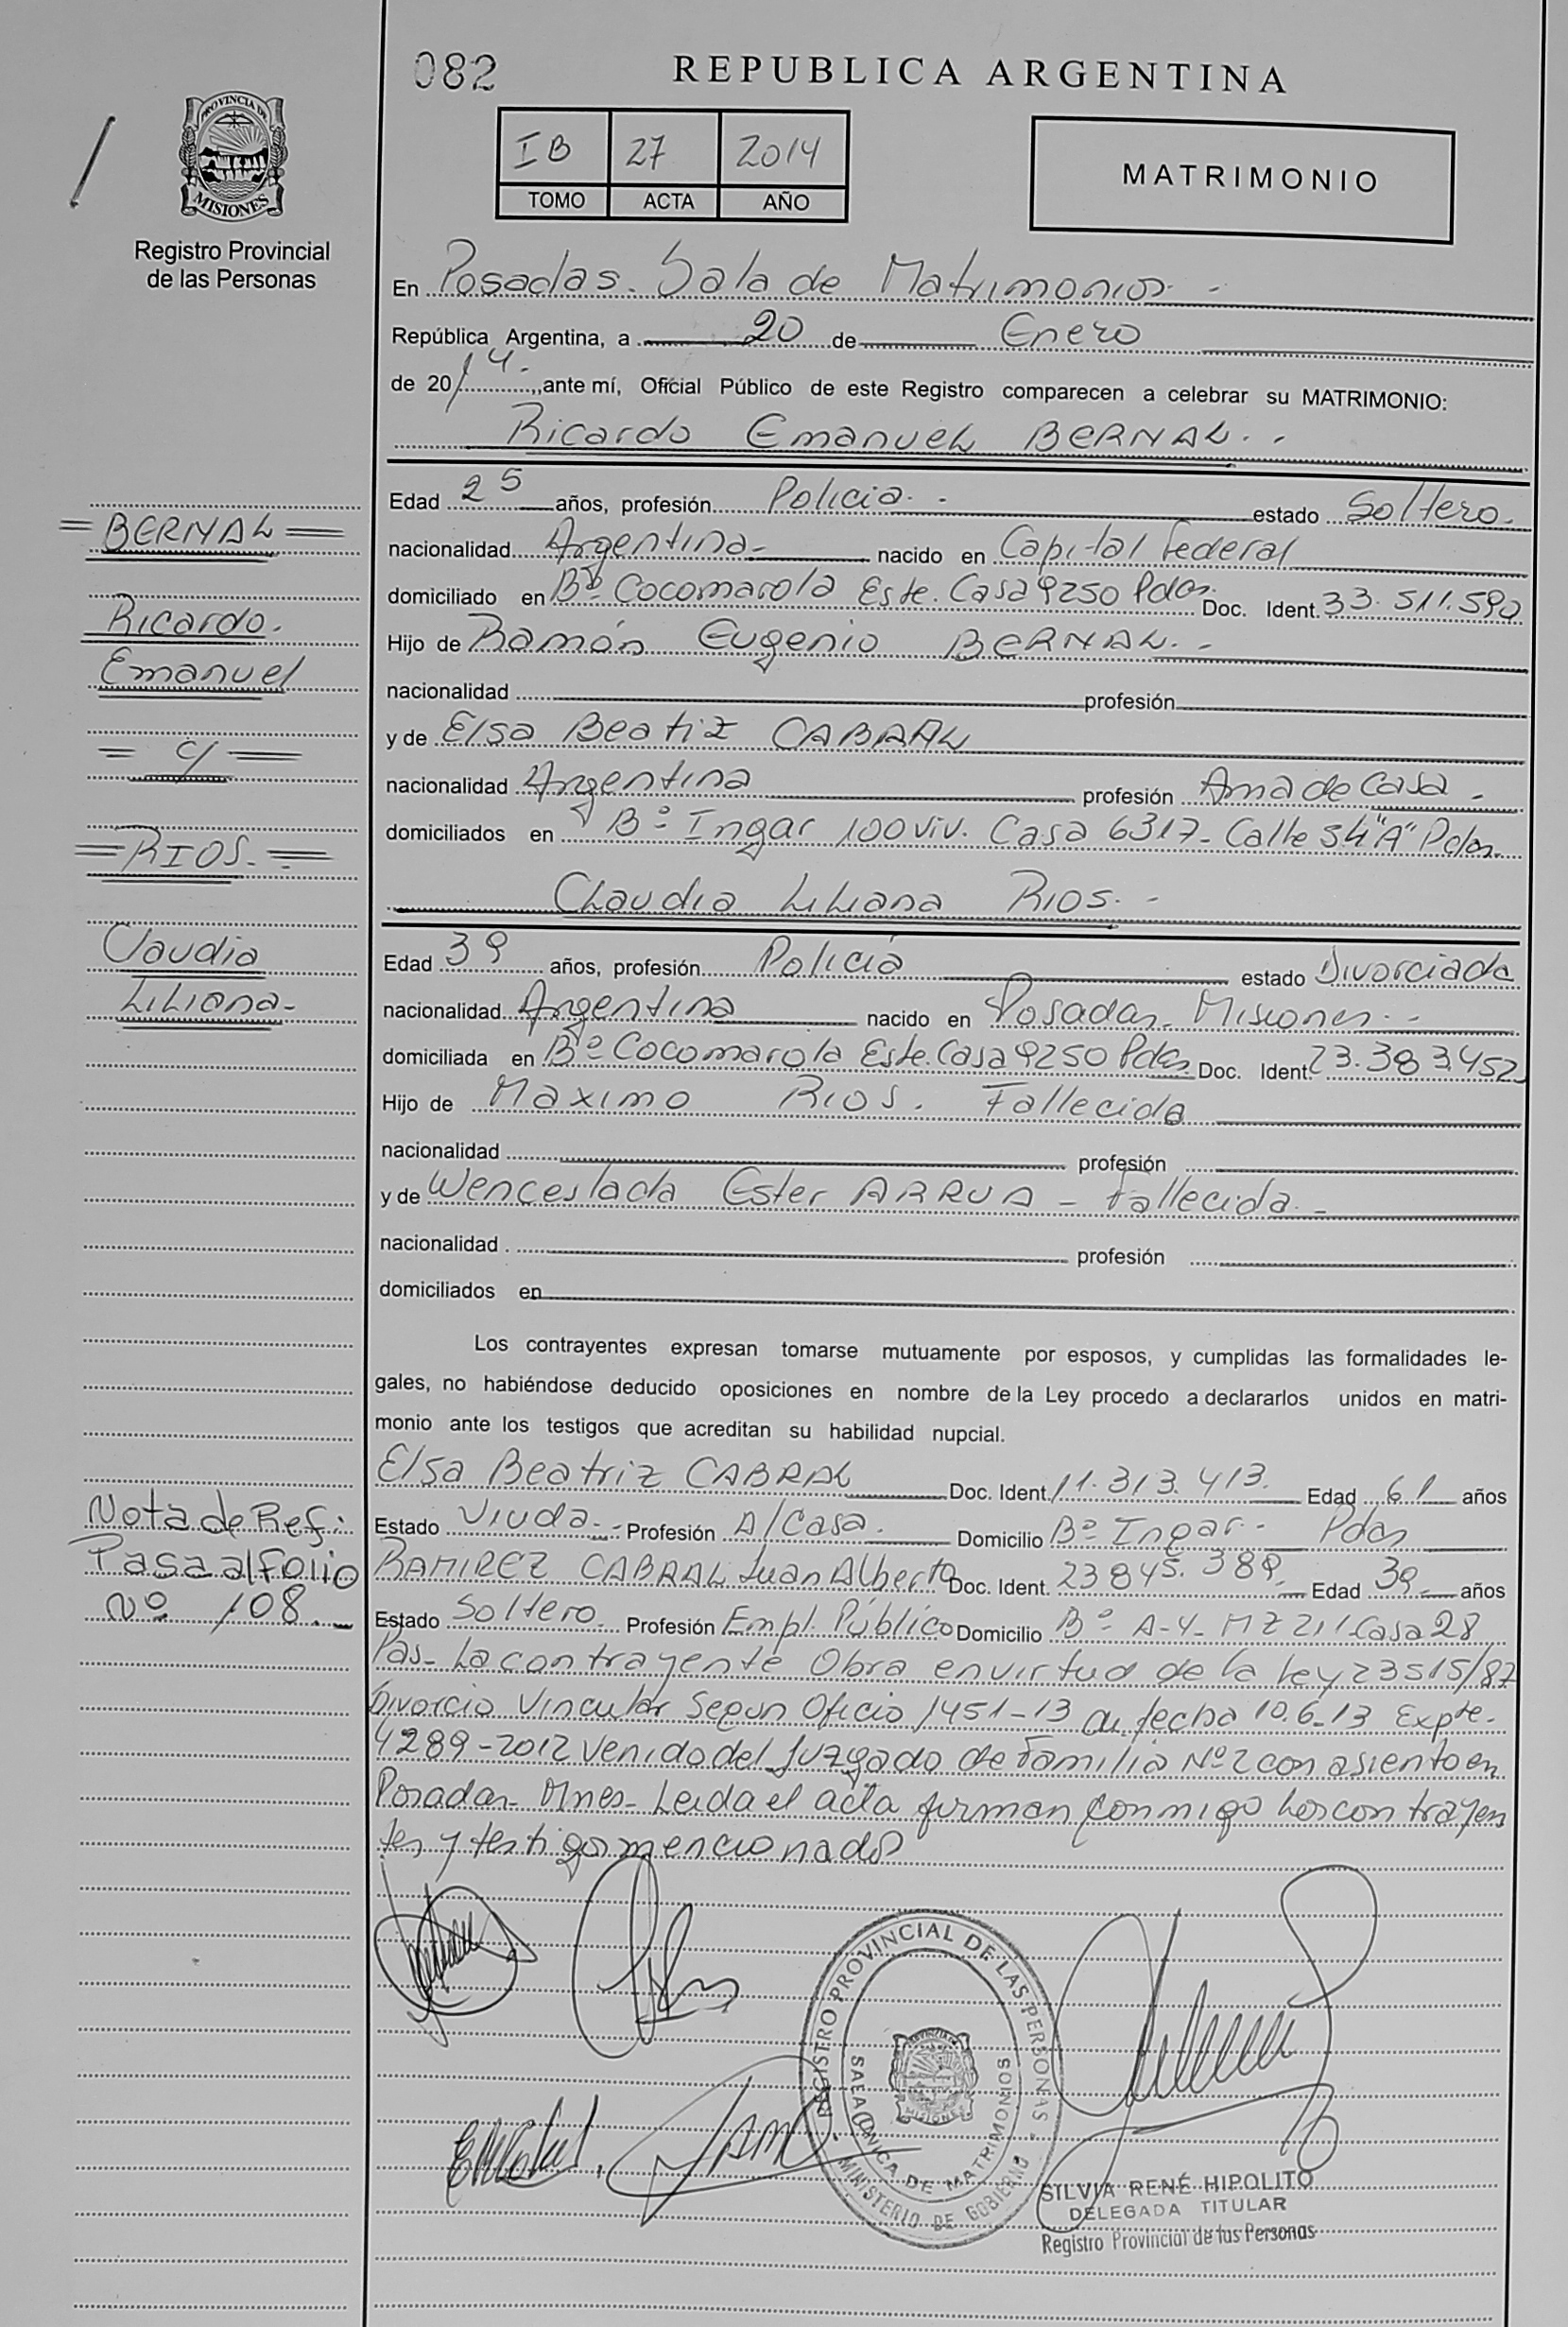 082
REPUBLICA ARGENTINA
IB 27 2014
TOMO ACTA AÑO
MATRIMONIO
PROVINCIA DE
MISIONES
Registro Provincial
de las Personas
En Posadas. Sala de Matrimonios. -
República Argentina, a 20 de Enero
de 2014. ,,ante mí, Oficial Público de este Registro comparecen a celebrar su MATRIMONIO:
Ricardo Emanuel BERNAL. -
Edad 25 años, profesión Policia. - estado Soltero.
nacionalidad Argentina- nacido en Capital Federal
domiciliado en Bº Cocomarola Este. Casa 9250 Pdas. Doc. Ident. 33.511.590
Hijo de Ramón Eugenio BERNAL. -
nacionalidad profesión
y de Elsa Beatiz CABRAL
nacionalidad Argentina profesión Ama de Casa -
domiciliados en Bº Ingar 100 viv. Casa 6317- Calle 34"A" Pdas.
Claudia Liliana RIOS. -
Edad 39 años, profesión Policía estado Divorciada
nacionalidad Argentina nacido en Posadas- Misiones. -
domiciliada en Bº Cocomarola Este. Casa 9250 Pdas. Doc. Ident. 23.383.452
Hijo de Maximo RIOS. Fallecido
nacionalidad profesión
y de Wenceslada Ester ARRUA - Fallecida. -
nacionalidad profesión
domiciliados en
Los contrayentes expresan tomarse mutuamente por esposos, y cumplidas las formalidades le-
gales, no habiéndose deducido oposiciones en nombre de la Ley procedo a declararlos unidos en matri-
monio ante los testigos que acreditan su habilidad nupcial.
Elsa Beatriz CABRAL Doc. Ident. 11.313.413. Edad 61 años
Estado Viuda. - Profesión A/Casa. Domicilio Bº Ingar. - Pdas
RAMIREZ CABRAL Juan Alberto Doc. Ident. 23845.389. Edad 39 años
Estado Soltero. Profesión Empl. Público Domicilio Bº A-4- MZ 211-Casa 28
Pas- La contrayente Obra en virtud de la Ley 23515/87
Divorcio Vincular Segun Oficio 1451-13 de fecha 10.6-13 Expte-
4289-2012 Venido del Juzgado de Familia Nº 2 con asiento en
Posadas- Mnes- Leida el acta firman conmigo los contrayen
tes y testigos mencionados
=BERNAL=
Ricardo.
Emanuel
= c/ =
=RIOS.=
Claudia
Liliana-
Nota de Ref:
Pasa al Folio
Nº 108.-
REGISTRO PROVINCIAL DE LAS PERSONAS
MINISTERIO DE GOBIERNO
UNICA DE MATRIMONIOS
PROVINCIA DE
MISIONES
SILVIA RENÉ HIPOLITO
DELEGADA TITULAR
Registro Provincial de las Personas